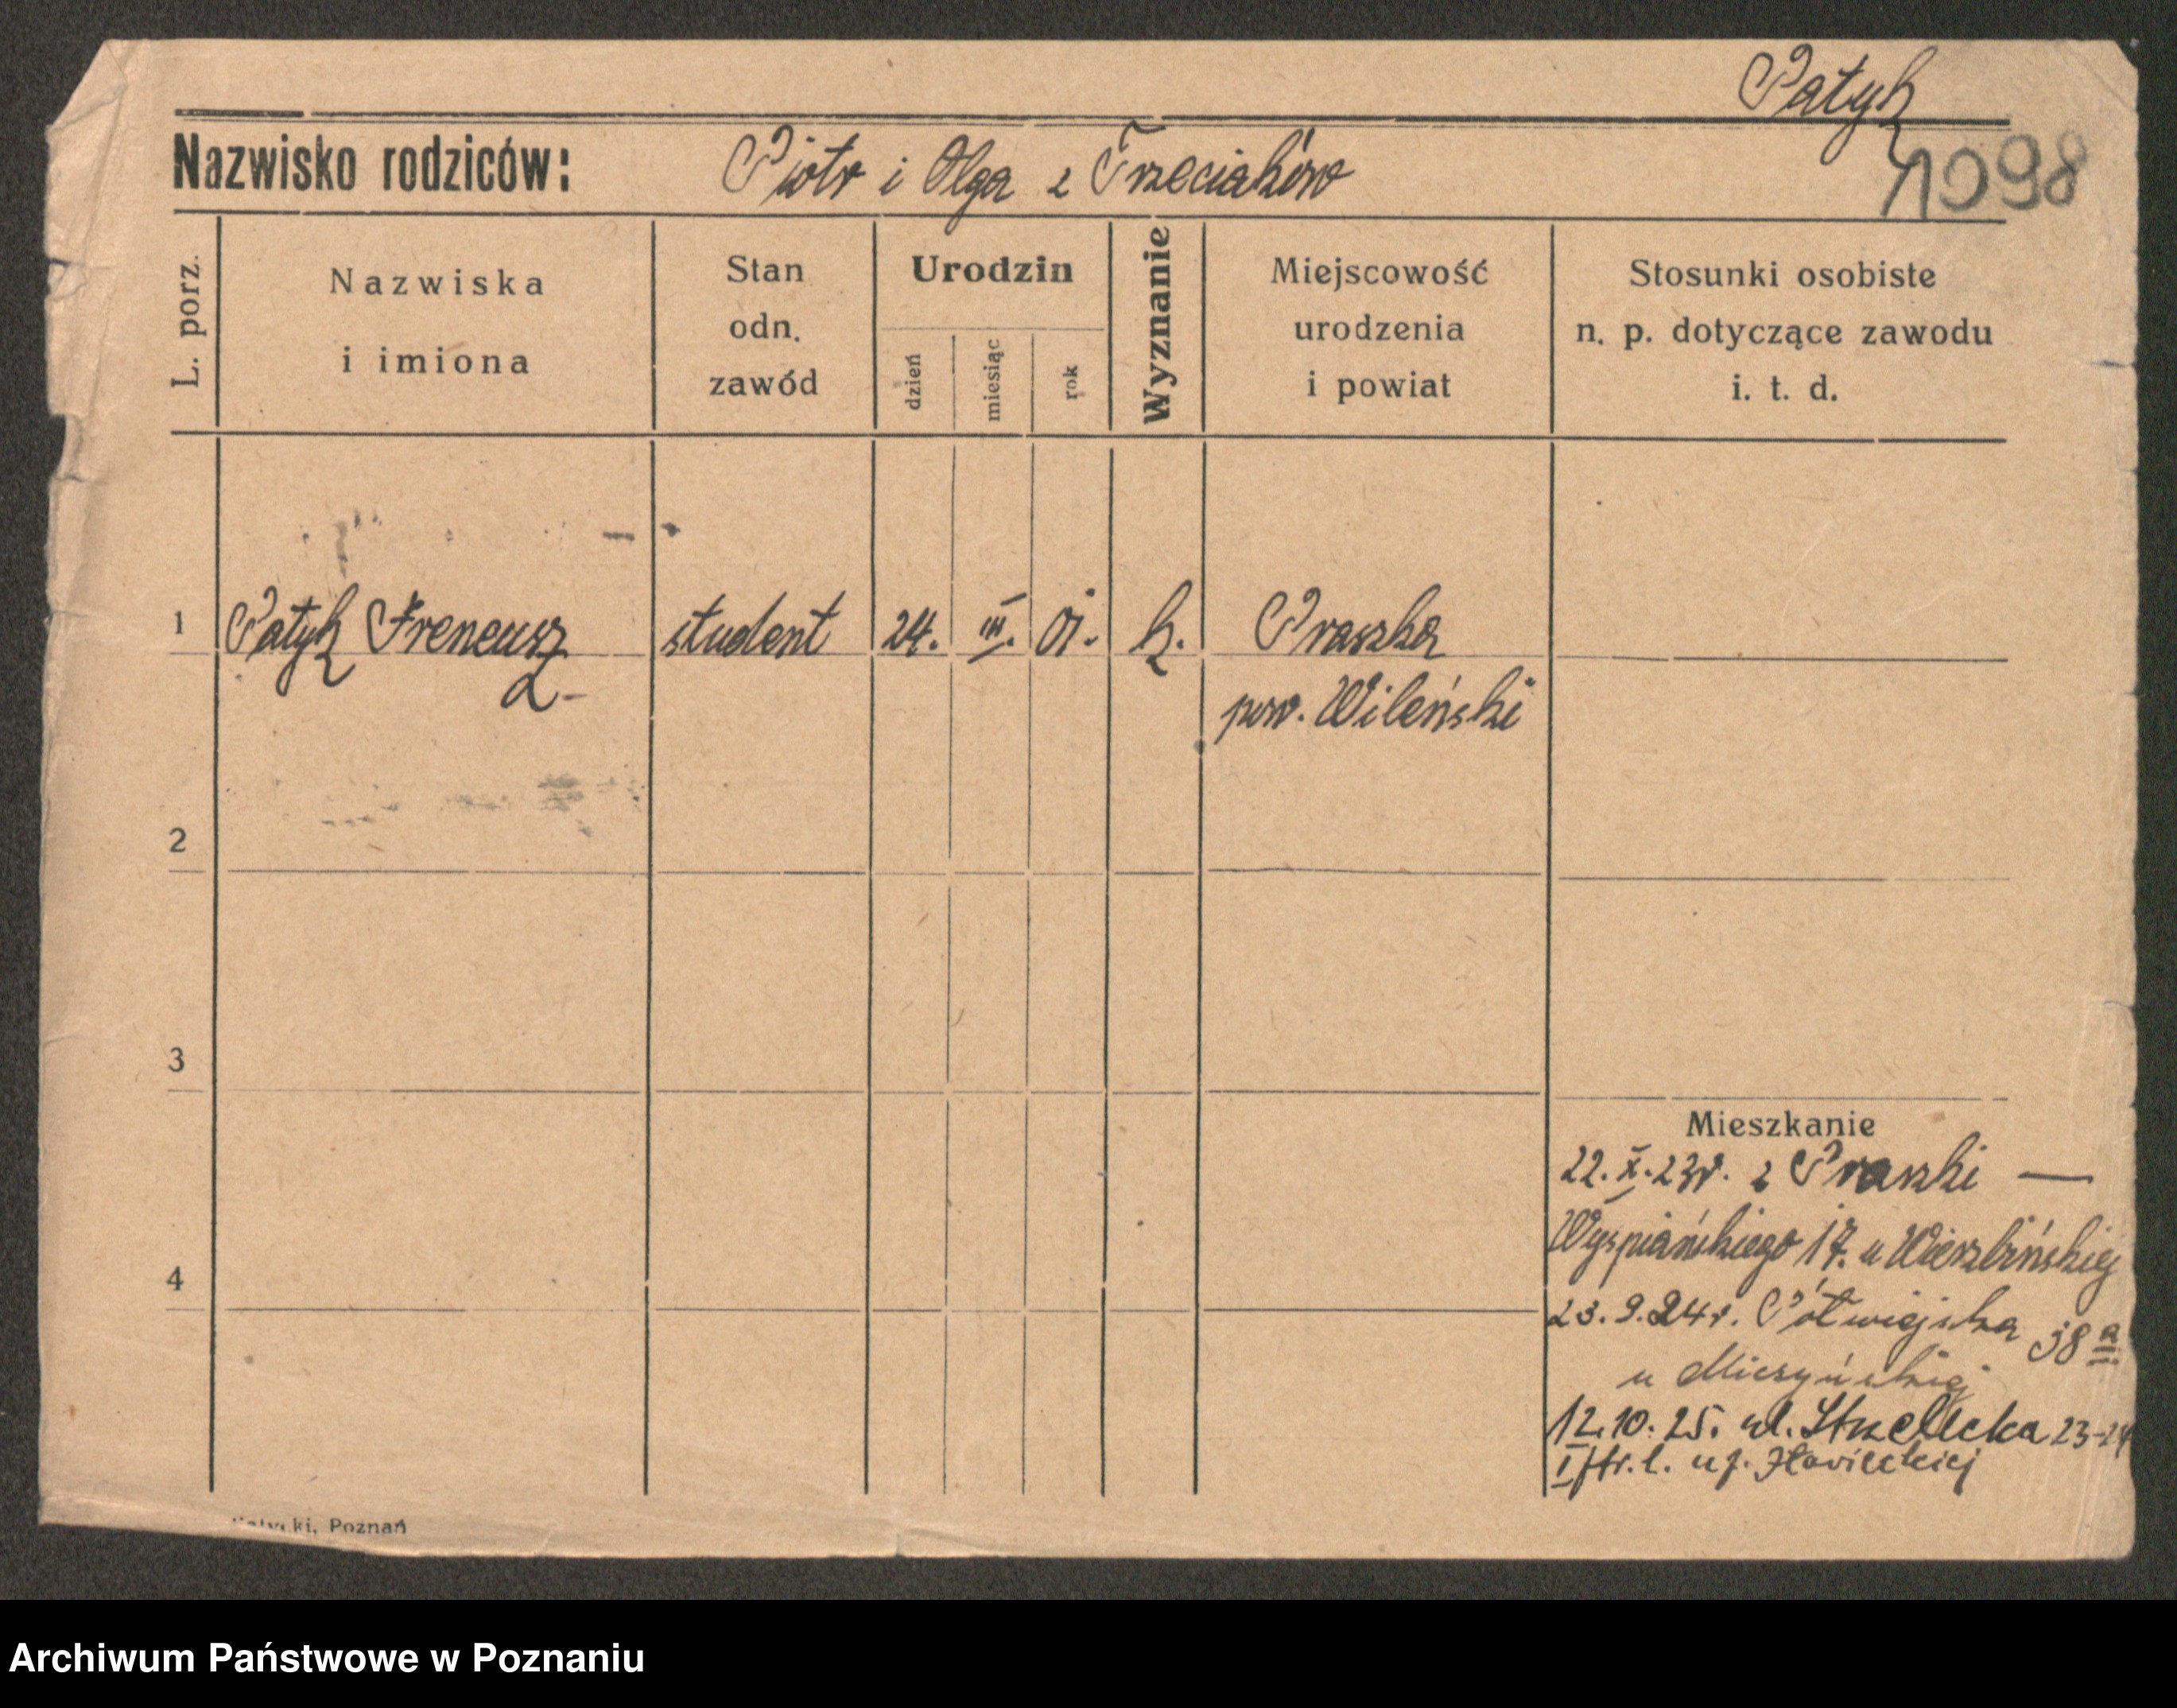 Patyk
Nazwisko rodziców: Piotr i Olga z Trzeciaków
1098
L. porz.
Nazwiska
i imiona
Stan
odn.
zawód
Urodzin
dzień
miesiąc
rok
Wyznanie
Miejscowość
urodzenia
i powiat
Stosunki osobiste
n. p. dotyczące zawodu
i. t. d.
1 Patyk Ireneusz student 24. III. 01. k. Praszka
pow. Wileński
2
3
4
Mieszkanie
22. X. 23r. z Praszki —
Wyspiańskiego 17. u Wierzbińskiej
23. 9. 24r. Półwiejska 38 a
u
12.10.25. ul. Strzelecka 23-24
I ptr. l. u
Poznań
Archiwum Państwowe w Poznaniu